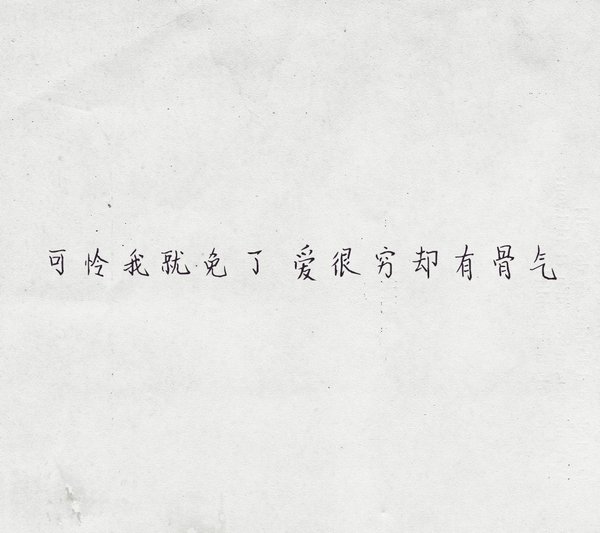 可怜我就免了 爱很穷却有骨气